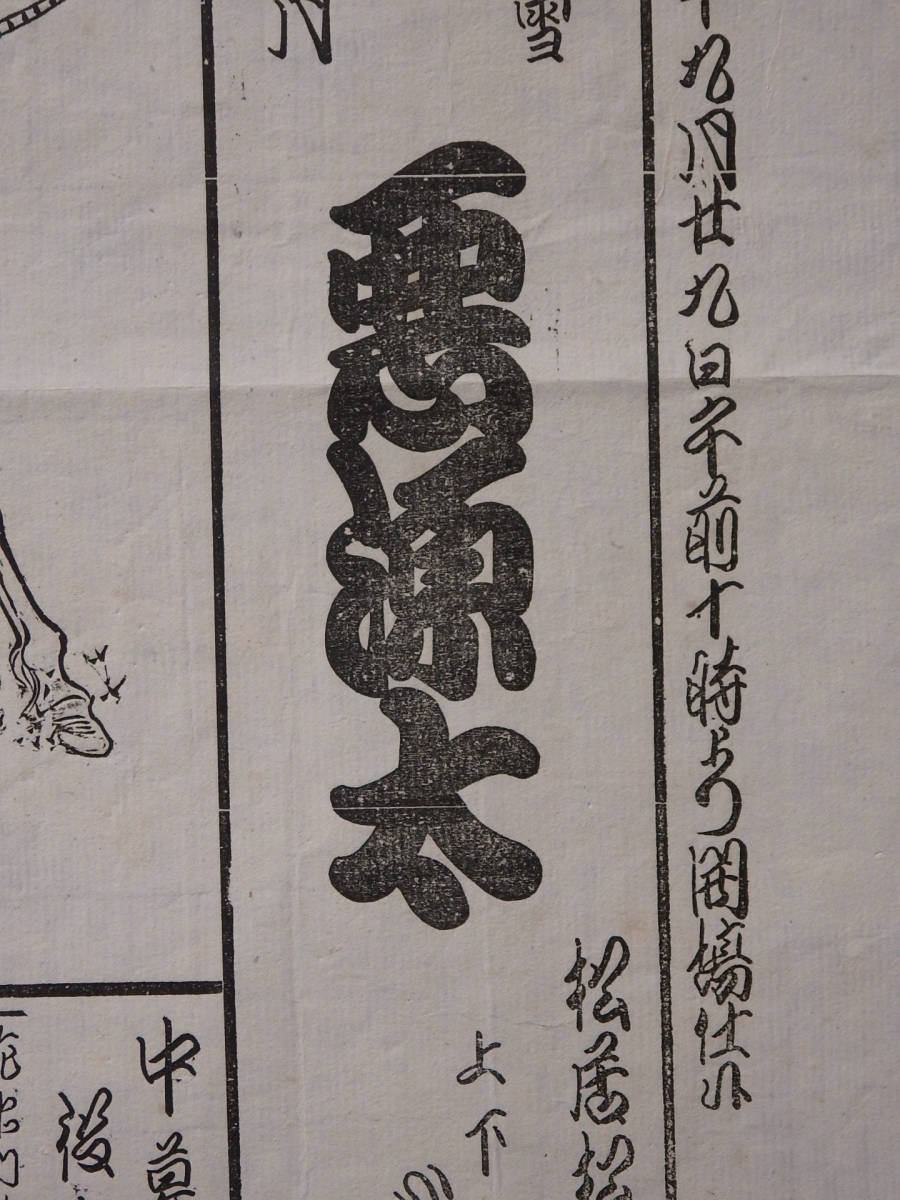 九月廿九日午前十時より開場仕候
雪
松居松
悪源太
上下
月
中幕
後